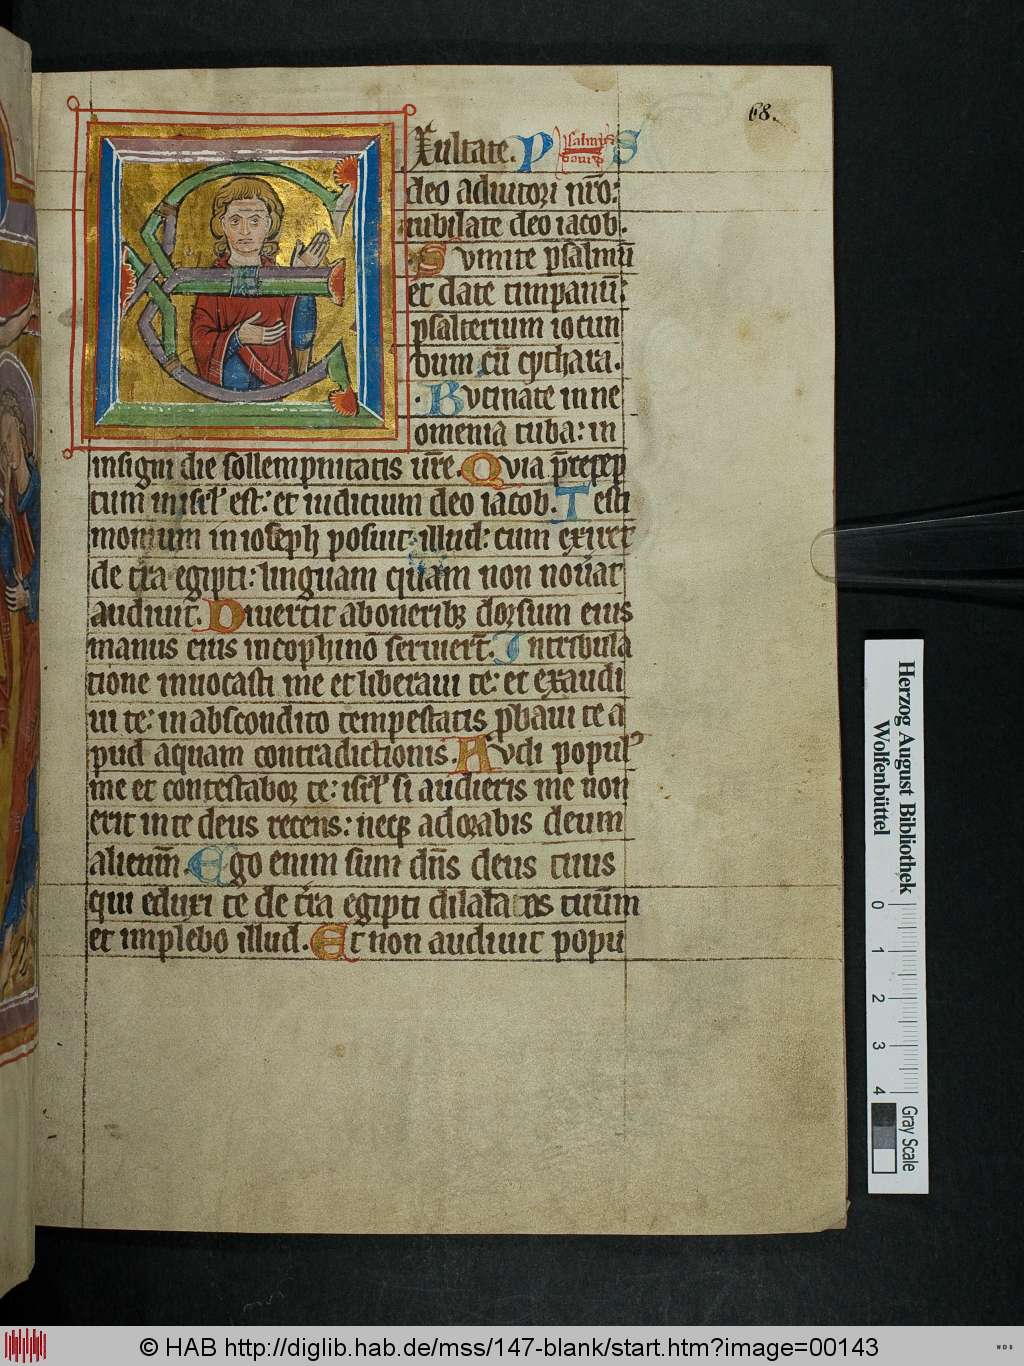 68.
Exultate. Psalmus David PS
deo adiutori nr̄o:
iubilate deo iacob.
Sumite psalmū
et date timpanū:
psalterium iocun
dum cū cythara.
Bucinate in ne
omenia tuba: in
insigni die sollempnitatis ur̄e. Quia p̄ cep
tum in isrl̓ est: et iudicium deo iacob. Testi
monium in ioseph posuit illud: cum exiret
de tr̄a egipti: linguam quam non nouat
audiuit. Diuertit ab oneribꝫ dorsum eius
manus eius in cophino seruier̄t. In tribula
tione inuocasti me et liberaui te: et exaudi
ui te: in abscondito tempestatis ꝓbaui te a
pud aquam contradictionis. Audi popul̓
me et contestabor te: isrl̓ si audieris me non
erit in te deus recens: necꝫ adorabis deum
alienū. Ego enim sum dn̄s deus tuus
qui eduxi te de tr̄a egipti dilata os tuum
et implebo illud. Et non audiuit popu
Herzog August Bibliothek
Wolfenbüttel
0 1 2 3 4
Gray Scale
© HAB http://diglib.hab.de/mss/147-blank/start.htm?image=00143